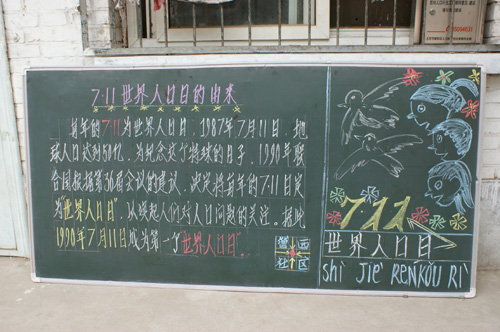 7·11世界人口日的由来
每年的7·11为世界人口日,1987年7月11日,地
球人口达到50亿,为纪念这个特殊的日子,1990年联
合国根据第36届会议的建议,决定将每年的7·11日定
为"世界人口日",以唤起人们对人口问题的关注。据此
1990年7月11日成为第一个"世界人口日"。
营西
社区
7.11
世界人口日
shì Jiè RENKǑU RÌ